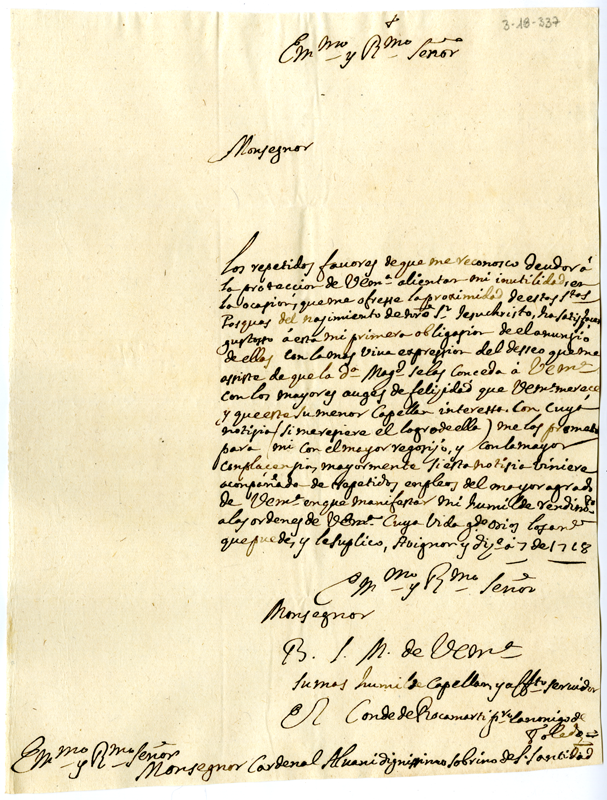 3-18-337
Em.mo y R.mo Señor
Monsegnor
Los repetidos favores de que me reconosco deudor á
la proteccion de VEm.a alientan mi inutilidad, en
la ocasion, que me ofresse la proximidad de estas S.tas
Pasquas del nasimiento de nrõ S.r Jesuchristo, ha satisfacer
gustoso á esta mi primera obligasion de el anunsio
de ellas con la mas viva expression del desseo que me
assiste de que la D.a Mag.d se las Conceda á VEm.a
con los mayores auges de felisidad que VEm.a merece
y que este su menor Capellan interessa. Con Cuya
notisia (si meresiere el logro de ella) me las prometo
para mi con el mayor regosijo, y con la mayor
complacensia, mayormente si esta notisia viniere
acompañada de repetidos empleos del mayor agrado
de VEm.a en que manifestar mi humilde rendim.to
a las ordenes de VEm.a Cuya Vida g.de Dios los an.s
que puede, y le suplico, Avignon y diz.e á 7 de 1718
Em.mo y R.mo Señor
Monsegnor
B. L. M. de VEm.a
su mas humilde Capellan y affto servidor
El Conde de Rocamarti p.re Canonigo de
Toledo
Em.mo y R.mo Señor
Monsegnor Cardenal Alvani dignissimo sobrino de S. Santidad